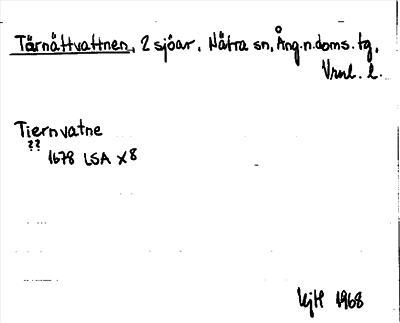 Tärnättvattnen, 2 sjöar, Nätra sn, Ång.n.doms.tg,
Vrnl. l.
Tiernvatne
??
1678 LSA X8
HjH 1968